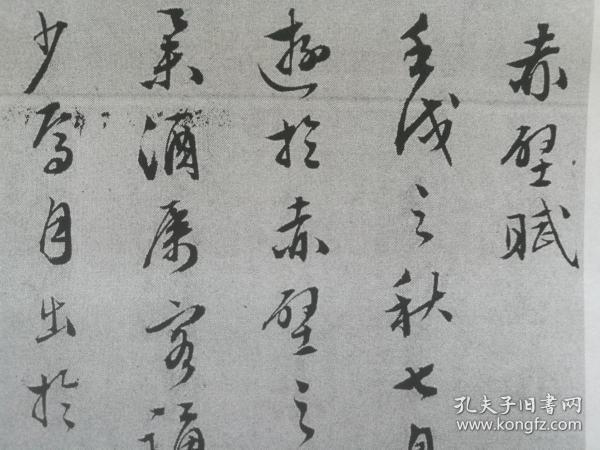 赤壁賦
壬戌之秋七月
遊於赤壁之
舉酒属客誦
少焉月出於
孔夫子旧书网
www.kongfz.com